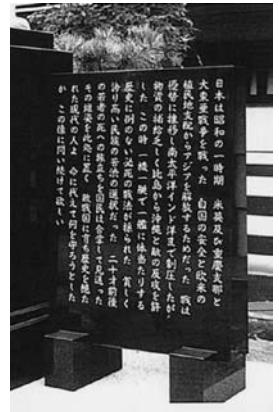 日本は昭和の一時期 米英及び重慶支那と
大東亜戦争を戦った 自国の安全と欧米の
植民地支配からアジアを解放するためだった 戦は
優勢に推移し南太平洋インド洋まで制圧したが
物資の補給乏しく比島から沖縄と敵の反攻を許
した この時 一機一艇で一艦に体当たりする
歴史に例のない必死の戦法が採られた 貧しく
誇り高い民族の苦渋の選択だった 二十才前後
の若者の死への旅立ちを国民は合掌して見送った
その雄姿を此処に置く 敗戦国に育ち歴史を絶た
れた現代の人よ 命に代えて何を守ろうとした
か この像に問い続けて欲しい